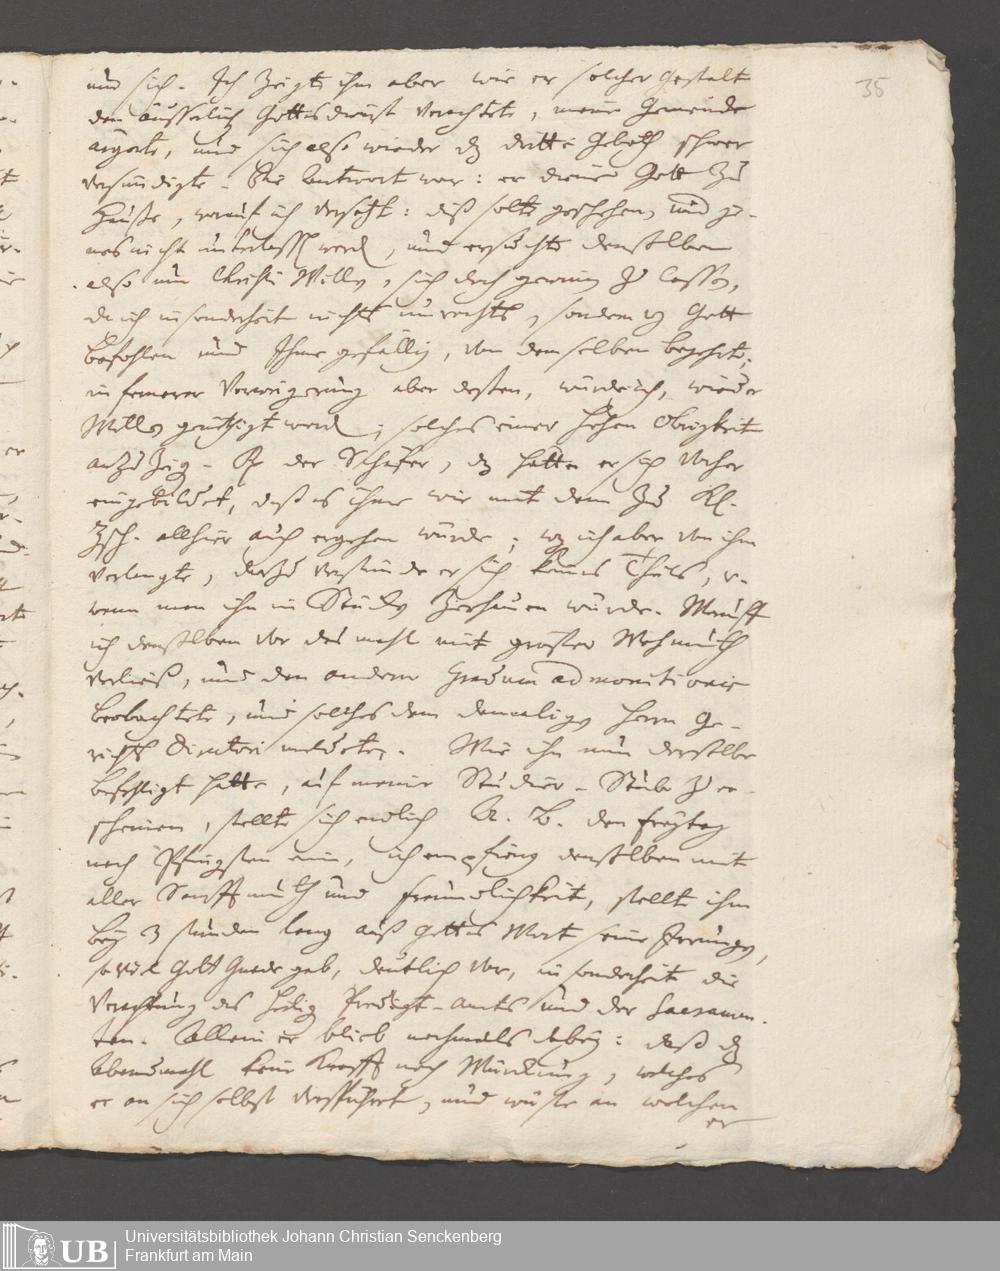 35
und sich. Ich zeigte ihm aber wie er solcher gestalt
den äusserlich Gottesdienst verachtete, meine Gemeinde
ärgerte, und sich also wieder dz dritte Geboth schwer
versündigte. Die Antwort war: er diene Gott zu
Hauße, worauf ich versetzt: diß solte geschehen, und je-
nes nicht unterlassen werden, und ersuchte denselben
also um Christi Willen, sich doch gewinnen zu lassen,
da ich insonderheit nichts unrechts, sondern v Gott
befohlen und Ihme gefällig, von demselben begehrte;
in fernerer Verweigerung aber dessen, würde ich, wieder
Willen genöthigt werden, solches einer hohen Obrigkeit
anzuzeigen. der Schäfer, dz hätte er sich vorher
eingebildet, daß es ihme wie mit dem zu Kl.
Zsch. allhier auch ergehen würde; wz ich aber von ihm
verlangte, darzu verstünde er sich keines Theils, u.
wenn man ihn in Stücken zerhauen würde. Worauff
ich denselben vor das mahl mit großer Wehmuth
verließ, und den andern Gradum admonitionis
beobachtete, und solches dem damaligen Herrn Ge-
richts Directori meldete. Wie ihn nun derselbe
befehligt hatte, auf meiner Studier-Stube zu er-
scheinen, stellte sich endlich A. B. den freytag
nach Pfingsten ein, ich empfieng denselben mit
aller Sanfftmuth und freundlichkeit, stellt ihm
bey 3 stunden lang auß Gottes Wort seine Irrungen,
soviel Gott Gnade gab, deutlich vor, insonderheit die
Verachtung des heilig Predigt-amts und der Sacramen-
ten. Allein er blieb nochmals dabey: daß dz
Abendmahl keine Krafft noch Würckung, welches
er an sich selbst verspührt, und wüste an welchen
er
UB
Universitätsbibliothek Johann Christian Senckenberg
Frankfurt am Main